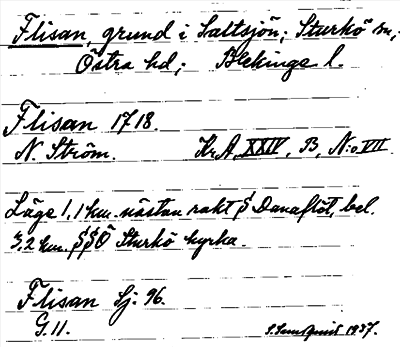 Flisan, grund i Saltsjön; Sturkö sn,
Östra hd; Blekinge l.
Flisan 1718.
N. Ström. Kr.A. XXIV, B, No VII
Läge 1,1 km. nästan rakt S Danaflöt, bel.
3,2 km. SSÖ Sturkö kyrka.
Flisan Sj. 96.
G. 11. 1937.